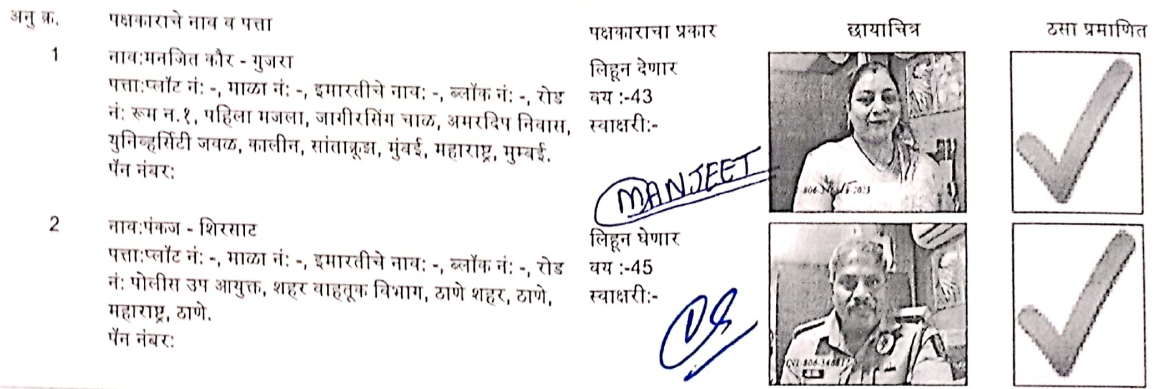 अनु क्र. पक्षकाराचे नाव व पत्ता पक्षकाराचा प्रकार छायाचित्र ठसा प्रमाणित
1 नाव:मनजित कौर - गुजरा
पत्ता:प्लॉट नं: -, माळा नं: -, इमारतीचे नाव: -, ब्लॉक नं: -, रोड
नं: रूम न.१, पहिला मजला, जागीरसिंग चाळ, अमरदिप निवास,
युनिव्हर्सिटी जवळ, कालीन, सांताक्रूझ, मुंबई, महाराष्ट्र, मुम्बई.
पॅन नंबर:
लिहून देणार
वय :-43
स्वाक्षरी:-
MANJEET
2 नाव:पंकज - शिरसाट
पत्ता:प्लॉट नं: -, माळा नं: -, इमारतीचे नाव: -, ब्लॉक नं: -, रोड
नं: पोलीस उप आयुक्त, शहर वाहतूक विभाग, ठाणे शहर, ठाणे,
महाराष्ट्र, ठाणे.
पॅन नंबर:
लिहून घेणार
वय :-45
स्वाक्षरी:-